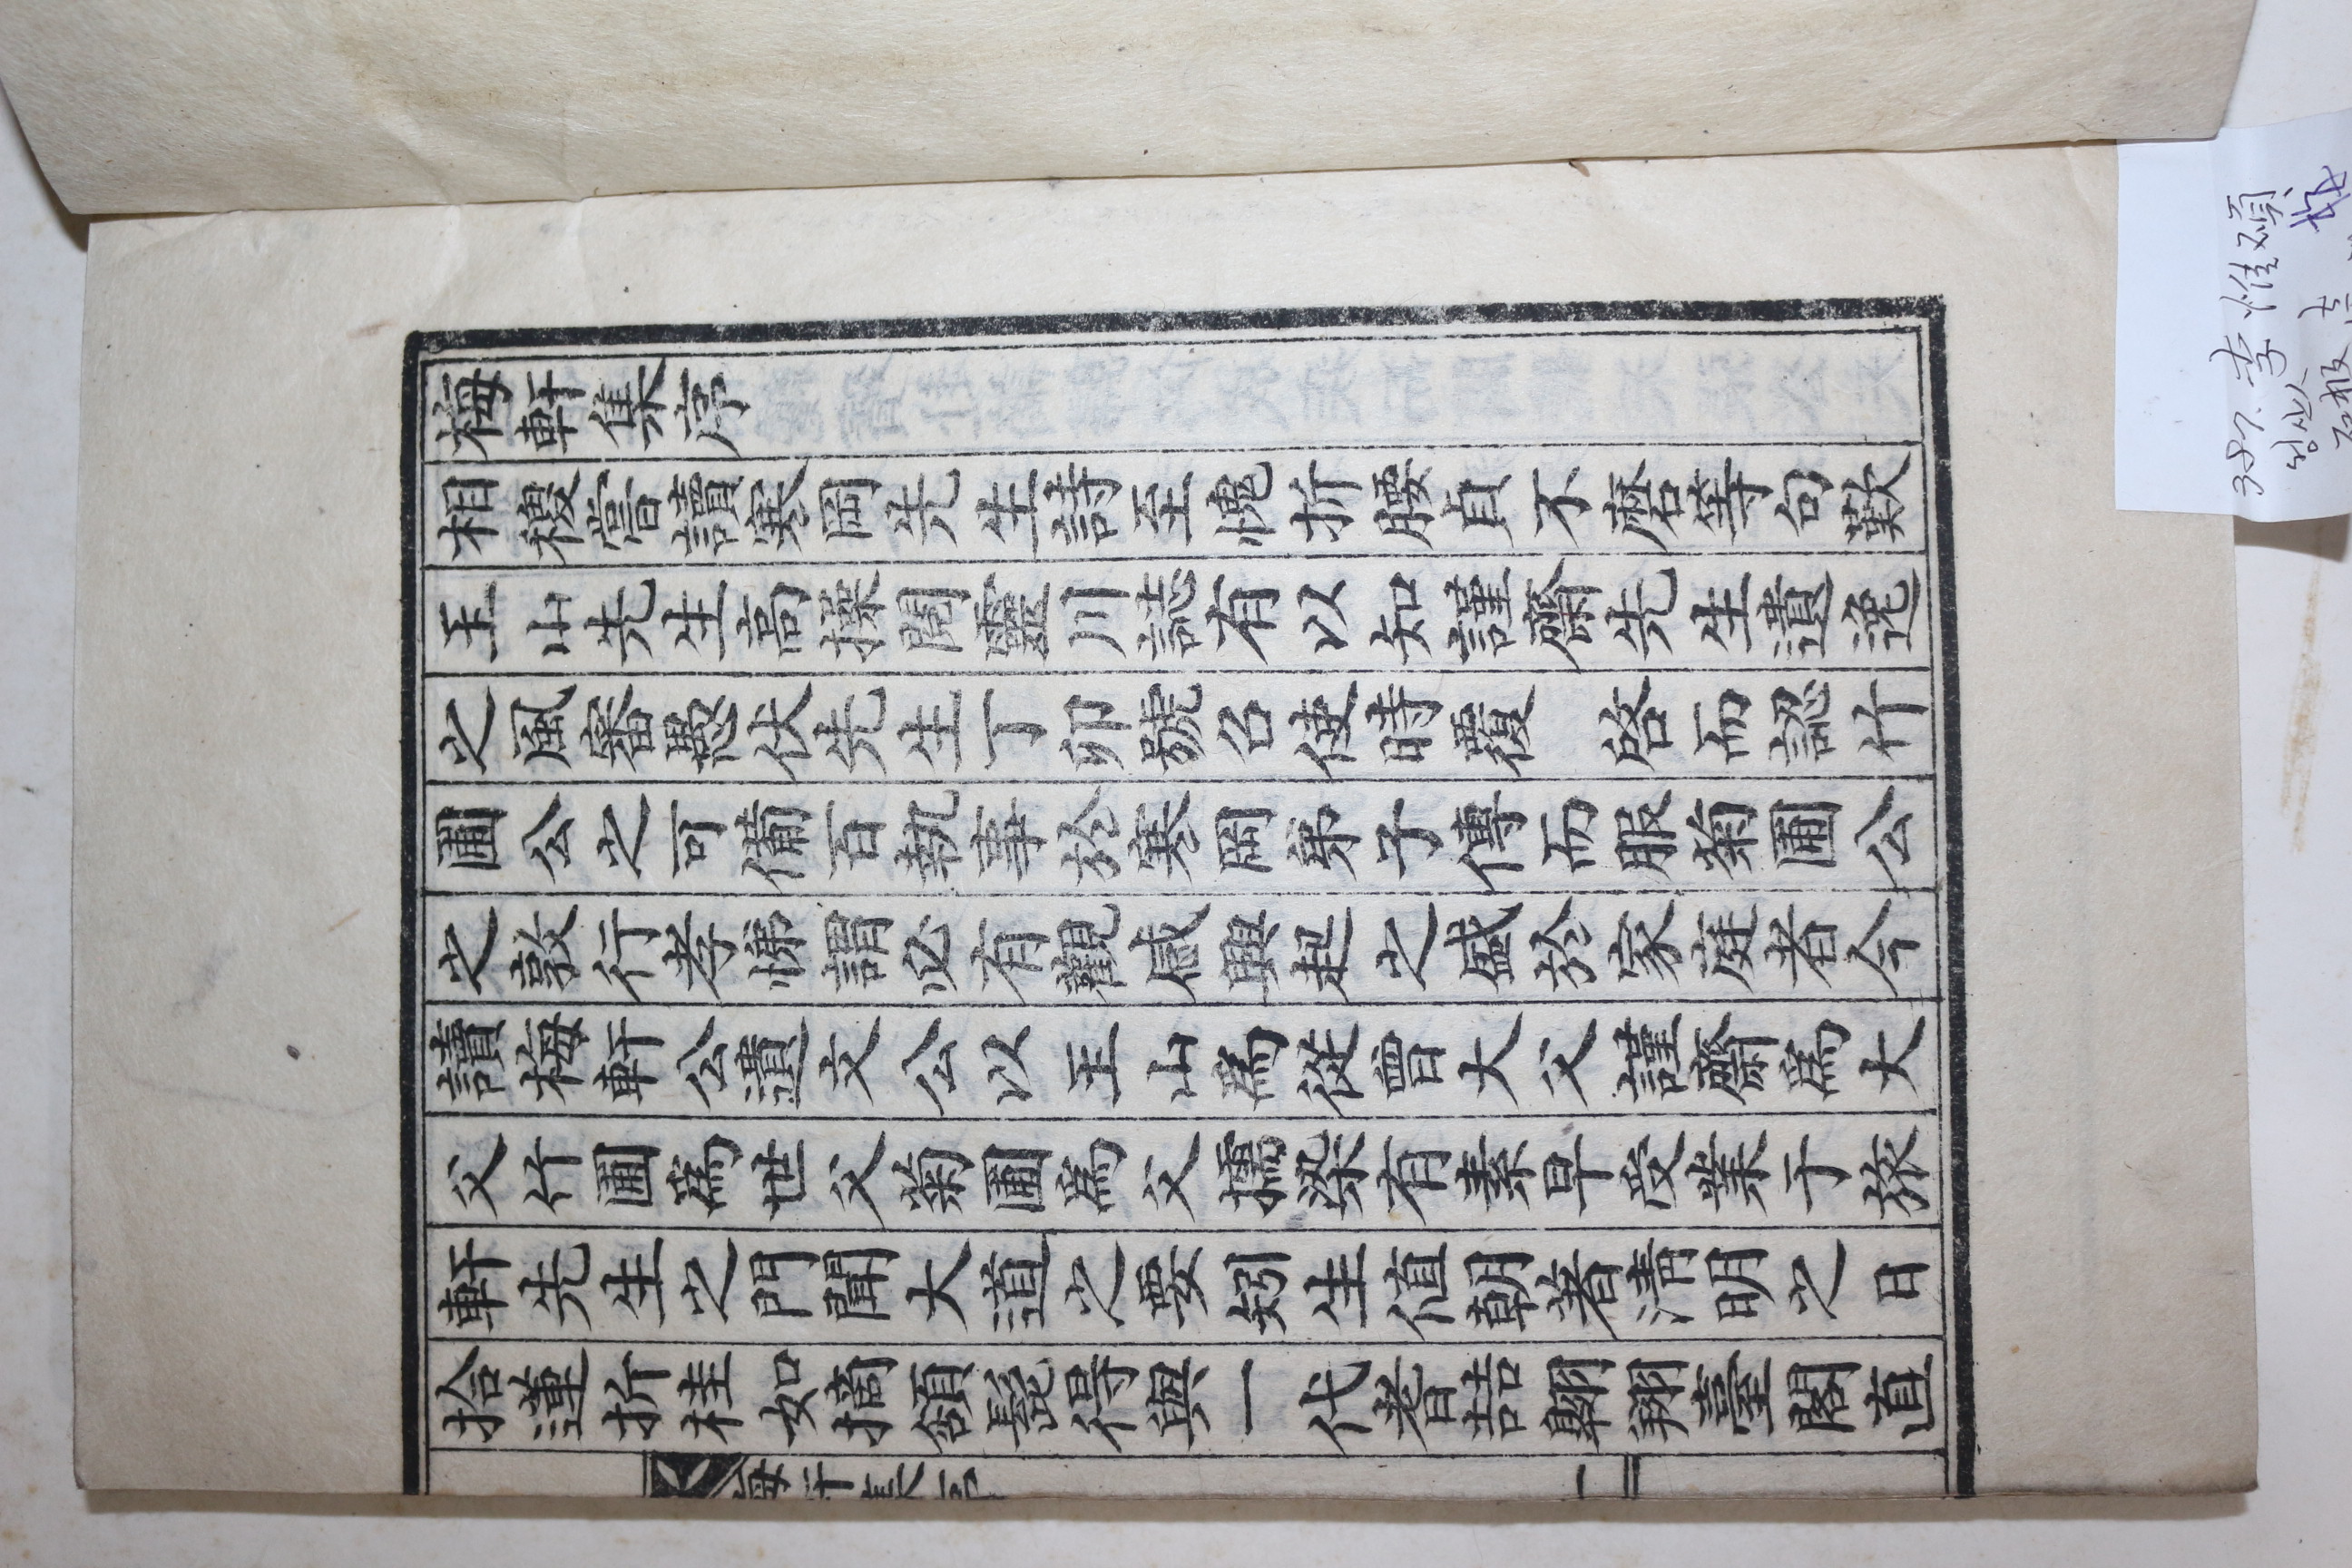 梅軒集序
相稷嘗讀寒岡先生詩至愧折腰貞不磨等句歎
玉山先生高操閱靈川誌有以知謹齋先生遺逸
之風審愚伏先生丁卯號召使時覆 啓而認竹
圃公之可備百執事於寒岡弟子傳而服菊圃公
之敦行孝悌謂必有觀感興起之盛於家庭者今
讀梅軒公遺文公以玉山爲從曾大父謹齋爲大
父竹圃爲世父菊圃爲父擩染有素早受業于旅
軒先生之門聞大道之要矧生值朝著淸明之日
拾蓮折桂如摘頷髭得與一代耆喆翺翔臺閣直
梅軒集序 一
387. 李惟碩